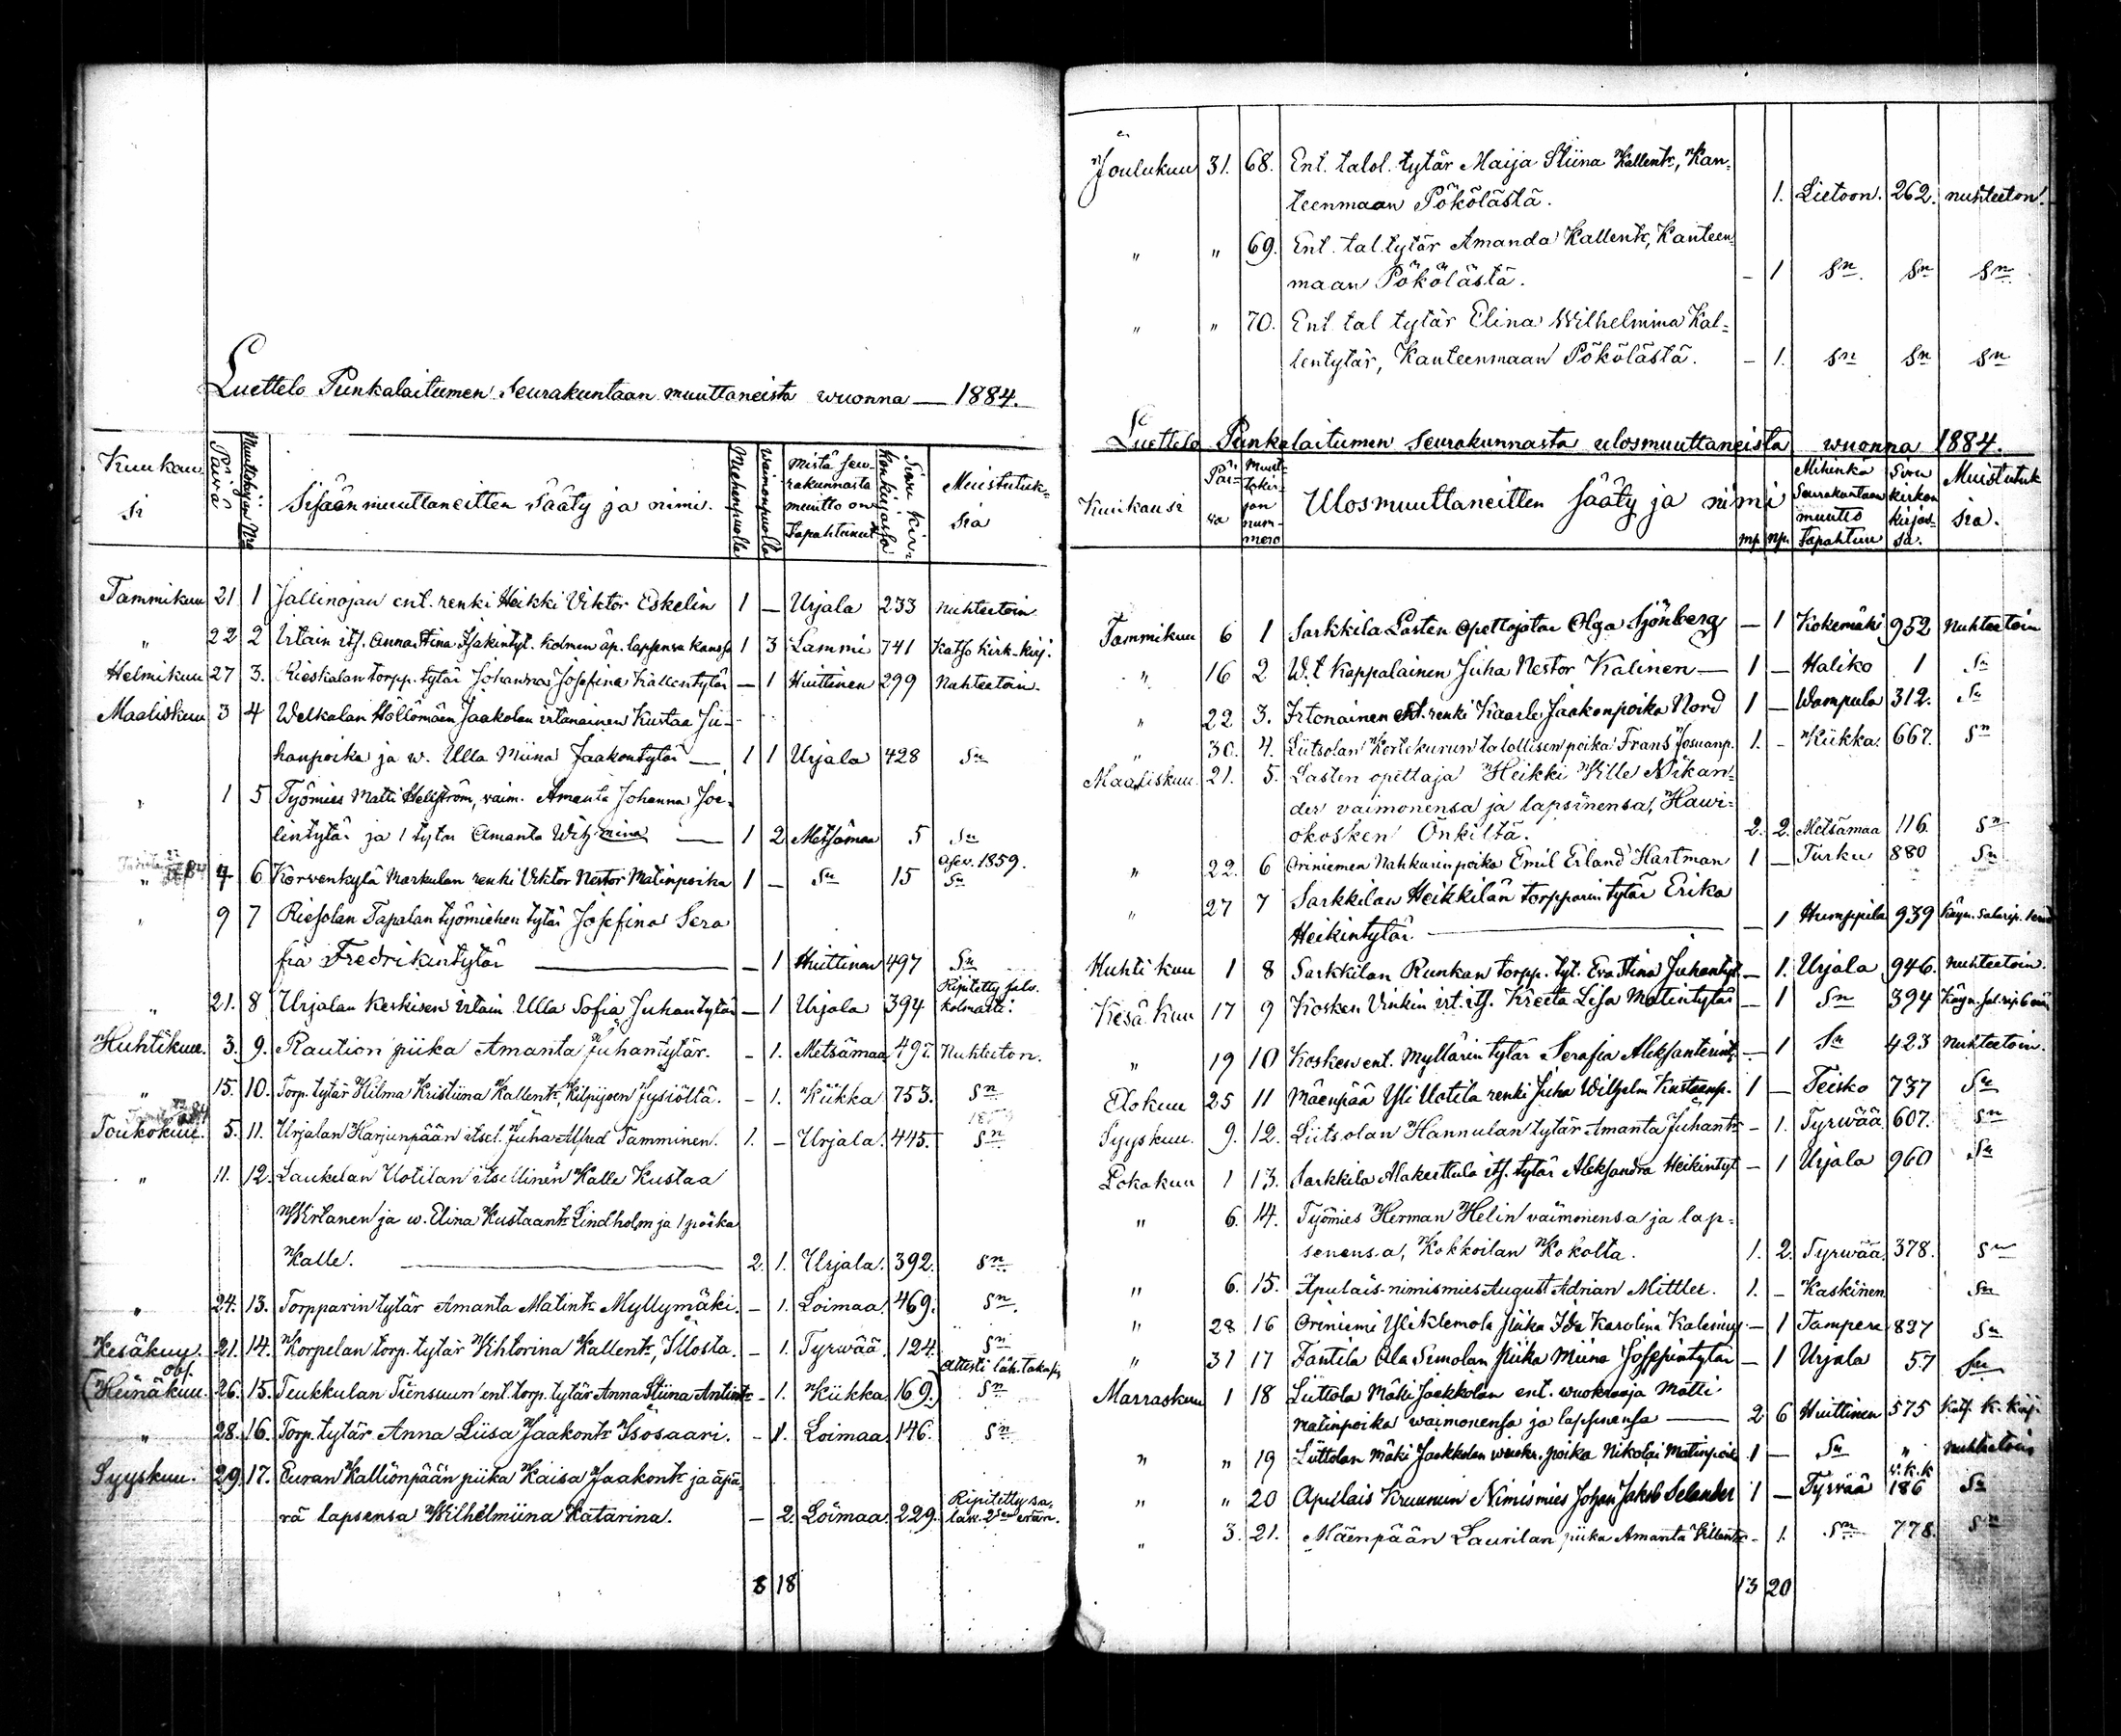 Luettelo Punkalaitumen Seurakuntaan muuttaneista wuonna — 1884.
Kuukausi Päivä Muuttokirjan Nro Sisäänmuuttaneitten Sääty ja nimi. Miehenpuolia Vaimonpuolia Mistä seurakunnasta muutto on tapahtunut Sivu kirkonkirjassa Muistutuksia
Tammikuu 21 1 Jallinojan ent. renki Heikki Viktor Eskelin 1 — Urjala 233 Nuhteetoin
" 22 2 Irtain its. Anna Stina Isakintyt. kolmen äp. lapsensa kanssa 1 3 Lammi 741 Katso kirk-kirj.
Helmikuu 27 3. Rieskalan torpp. tytär Johanna Josefina Kallentytär — 1 Huittinen 299 Nuhteetoin.
Maaliskuu 3 4 Welkalan Höltömäen Jaakolan irtanainen Kustaa Ju-
hanpoika ja w. Ulla Miina Jaakontytär — 1 1 Urjala 428 Sn
" 1 5 Työmies Matti Hellström, vaim. Amanta Johanna Joe-
lintytär ja 1 tytär Amanta Wilhmina — 1 2 Metsämaa 5 Sn
" 4 6 Korwenkylä Markulan renki Viktor Nestor Matinpoika 1 — Sn 15 Asev. 1859. Sn
" 9 7 Riesolan Tapalan työmiehen tytär Josefina Sera
fia Fredrikintytär — — 1 Huittinen 497 Sn
" 21. 8 Urjalan Keskisen irtain Ulla Sofia Juhantytär — 1 Urjala 394 Ripitetty salv. kolmasti.
Huhtikuu. 3. 9. Raution piika Amanta Juhantytär. - 1. Metsämaa 497. Nuhteeton.
" 15. 10. Torp. tytär Hilma Kristiina Kallentr, Kilpijoen Jysiöltä. - 1. Kiikka 753. Sn
Toukokuu. 5. 11. Urjalan Harjunpään itsel. Juha Alfred Tamminen. 1. - Urjala. 445. Sn
" 11. 12. Laukelan Uotilan itsellinen Kalle Kustaa
Wirtanen ja w. Elina Kustaantr Lindholm ja 1 poika
Kalle. — 2. 1. Urjala. 392. Sn
" 24. 13. Torpparin tytär Amanta Matintr Myllymäki. - 1. Loimaa. 469. Sn.
Kesäkuu. 21. 14. Korpelan torp. tytär Wihtorina Kallentr, Illosta. - 1. Tyrwää. 124. Sn
obs. Attesti läh. takasin
(Heinäkuu. 26. 15. Teukkulan Tiensuun ent. torp. tytär Anna Stiina Antintr - 1. Kiikka. 169.) Sn
" 28. 16. Torp. tytär Anna Liisa Jaakontr Isosaari. - 1. Loimaa. 146. Sn
Syyskuu. 29. 17. Euran Kallionpään piika Kaisa Jaakontr ja äpä-
rä lapsensa Wilhelmiina Katarina. — 2. Loimaa. 229. Ripitetty sa. lau. 2sen erän.
8 18
Joulukuu 31. 68. Ent. talol. tytär Maija Stiina Kallentr, Kan-
teenmaan Pökölästä. 1. Lietoon. 262. nuhteeton.
" " 69. Ent. tal. tytär Amanda Kallentr, Kanteen-
maan Pökölästä. - 1 Sn. Sn Sn.
" " 70. Ent. tal tytär Elina Wilhelmina Kal-
lentytär, Kanteenmaan Pökölästä. - 1. Sn Sn Sn
Luettelo Punkalaitumen Seurakunnasta ulosmuuttaneista wuonna 1884.
Kuukausi Päivä Muuttokirjan nummero Ulosmuuttaneitten Sääty ja nimi mp. np. Mihinkä Seurakuntaan muutto tapahtuu Sivu kirkon kirjassa. Muistutuksia.
Tammikuu 6 1 Sarkkila Lasten Opettajatar Olga Sjönberg — 1 Kokemäki 952 Nuhteetoin
" 16 2 W.t. Kappalainen Juha Nestor Kalinen — 1 — Haliko 1 Sn
" 22 3. Irtonainen ent. renki Kaarle Jaakonpoika Nord 1 — Wampula 312. Sn
" 30. 4. Liitsolan Kortekurun talollisen poika Frans Josuanp. 1. - Kiikka. 667. Sn
Maaliskuu. 21. 5. Lasten opettaja Heikki Wille Nikan-
der vaimonensa ja lapsinensa, Hawi-
okosken Onkilta. 2. 2. Metsämaa 116. Sn
" 22. 6 Oriniemen Nahkurin poika Emil Erland Hartman 1 — Turku 880 Sn
" 27 7 Sarkkilan Heikkilän torpparin tytär Erika
Heikintytär — — 1 Humppila 939 Käyn. salarip.
Huhtikuu 1 8 Sarkkilan Runkan torpp. tyt. Eva Stina Juhantyt. — 1. Urjala 946. Nuhteetoin.
Kesäkuu 17 9 Kosken Vinkin irt. its. Kreeta Lisa Matintytär — 1 Sn 394 Käyn. sal. rip. 6
" 19 10 Kosken ent. Myllärin tytär Serafia Aleksanterint. — 1 Sn 423 Nuhteetoin.
Elokuu 25 11 Mäenpää Yli Uotila renki Juha Wilhelm Kustaanp. 1 — Teisko 737 Sn
Syyskuu. 9. 12. Liitsolan Hannulan tytär Amanta Juhantr - 1. Tyrwää 607. Sn
Lokakuu 1 13. Sarkkila Alakerttula its. tytär Aleksandra Heikintyt — 1 Urjala 960 Sn
" 6. 14. Työmies Herman Helin vaimonensa ja lap-
senensa, Kokkoilan Kokolta. 1. 2. Tyrwää. 378. Sn
" 6. 15. Apulais-nimismies August Adrian Mittler. 1. - Kaskinen Sn
" 28 16 Oriniemi Yliklemola piika Ida Karolina Kalentyt — 1 Tampere 827 Sn
" 31 17 Fantila Ala Simolan piika Miina Josefintytär — 1 Urjala 57 Sn
Marraskuu 1 18 Liittola Mäki Jaakkolan ent. wuokraaja Matti
Matinpoika waimonensa ja lapsinensa — 2 6 Huittinen 575 Kats. k. kirj.
" " 19 Liittolan Mäki Jaakkolan wuokr. poika Nikolai Matinpoik 1 — Sn " Nuhteetoin
" " 20 Apulais Kruunun Nimismies Johan Jakob Selander 1 — Tyrvää v.k.k 186 Sn
" 3. 21. Mäenpään Laurilan piika Amanta Villentr - 1. Sn 778. Sn
13 20